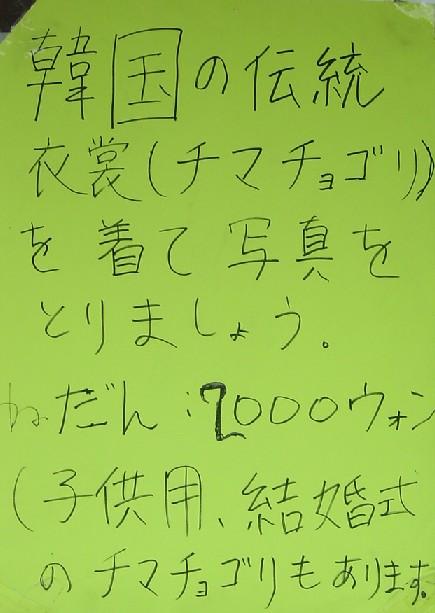 韓国の伝統
衣裳(チマチョゴリ)
を着て写真を
とりましょう。
ねだん:7000ウォン
(子供用、結婚式
のチマチョゴリもあります。